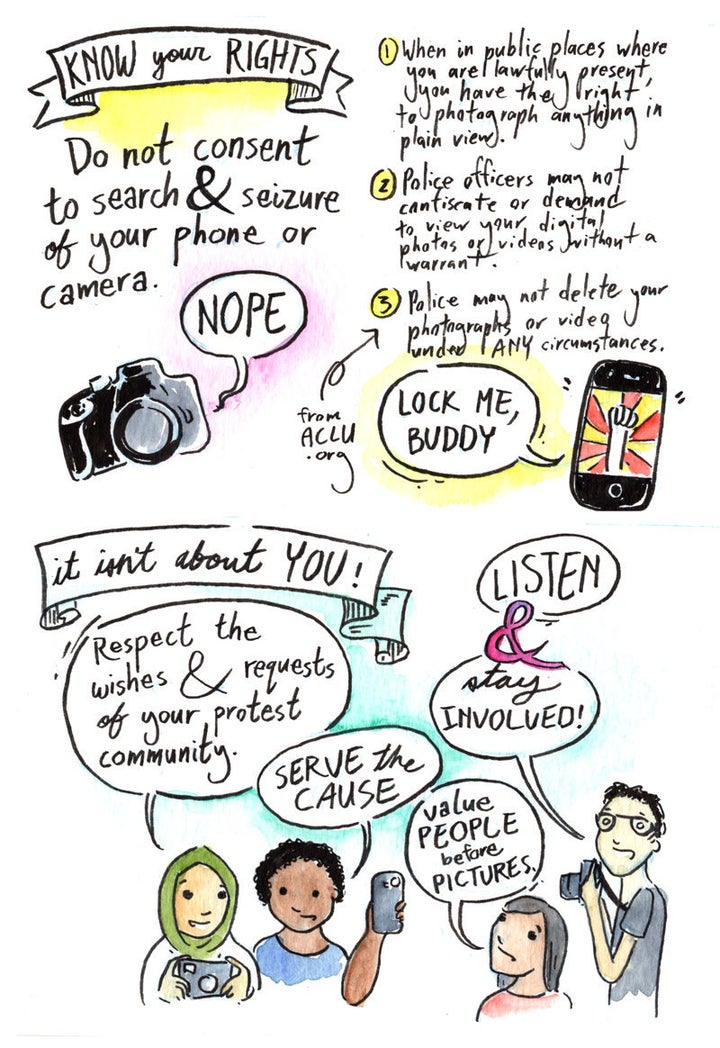 KNOW your RIGHTS
Do not consent
to search & seizure
of your phone or
camera.
NOPE
1 When in public places where
you are lawfully present,
you have the right
to photograph anything in
plain view.
2 Police officers may not
confiscate or demand
to view your digital
photos or videos without a
warrant.
3 Police may not delete your
photographs or video
under ANY circumstances.
from
ACLU
.org
LOCK ME,
BUDDY
it isn't about YOU!
Respect the
wishes & requests
of your protest
community.
SERVE the
CAUSE
LISTEN
&
stay
INVOLVED!
value
PEOPLE
before
PICTURES.